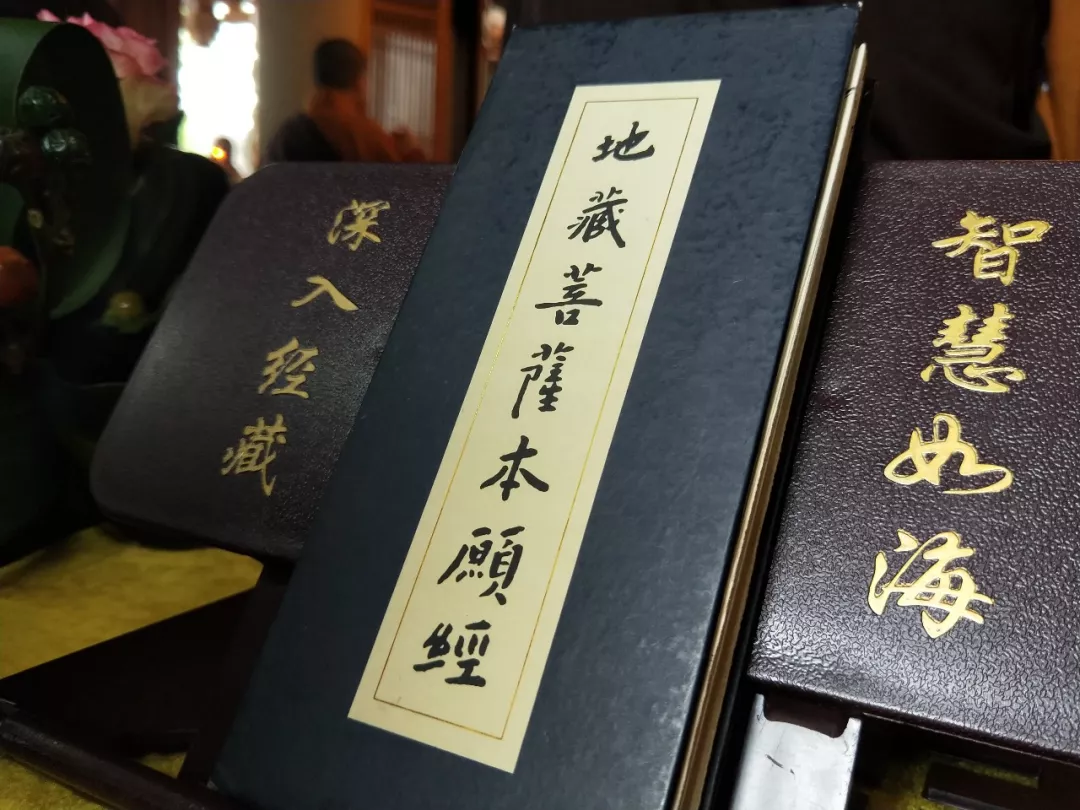 深入经藏
地藏菩薩本願經
智慧如海